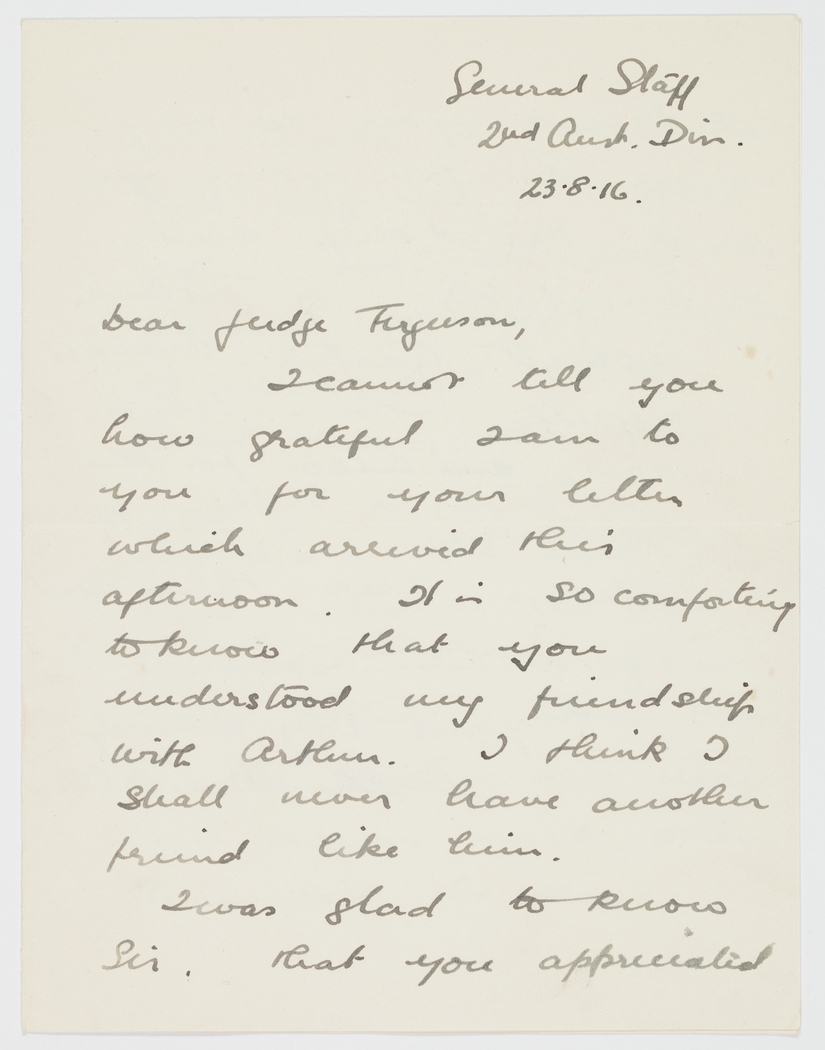 General Staff
2nd Aust. Div.
23.8.16.
Dear Judge Ferguson,
I cannot tell you
how grateful I am to
you for your letter
which arrived this
afternoon. It is so comforting
to know that you
understood my friendship
with Arthur. I think I
shall never have another
friend like him.
I was glad to know
Sir, that you appreciated